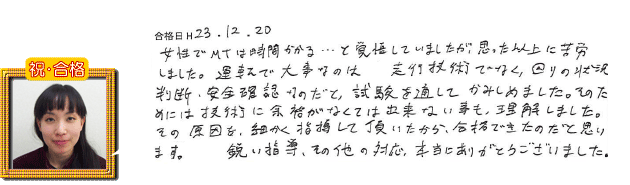 合格日 H23.12.20
祝・合格
女性でMTは時間かかる…と覚悟していましたが思った以上に苦労
しました。運転で大事なのは 走行技術でなく、回りの状況
判断・安全確認なのだと、試験を通して かみしめました。そのた
めには技術に余裕がなくては出来ない事も、理解しました。
その原因を、細かく指摘して頂いたから、合格できたのだと思い
ます。 鋭い指導、その他の対応、本当にありがとうございました。